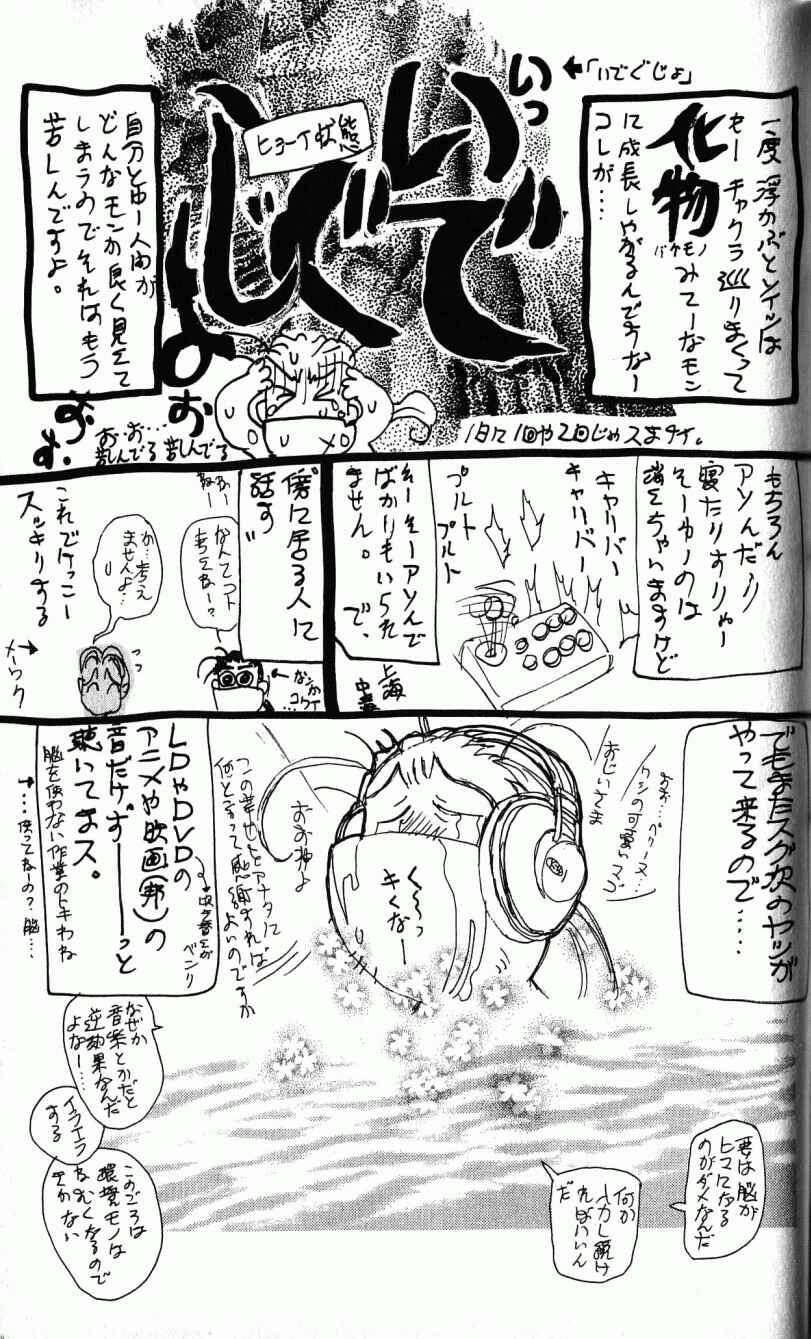 一度浮かぶとソイツは
もーチャクラ巡りまくって
化物
バケモノ
みてーなモン
に成長しやがるんですなー
コレが‥‥
←「いでぐじょ」
いっ
いでぐじょ
ヒョーイ状態
お
お
お・お…
苦しんでる
苦しんでる
自分とゆー人間が
どんなモンか良く見えて
しまうのでそれはもう
苦しんですよ。
1日に1回や2回じゃスまヌケ。
もちろん
アソんだり
寝たりすりゃー
そーゆーのは
消えちゃいますけど
キャリバー
キャリバー
プルト
プルト
そーそーアソんで
ばかりもいられ
ません。で、
上海
傍に居る人に
話す〟
なんてコト
考えねー?
←なんか
コワイ…
か…考え
ませんよ…
っっ
これでけっこー
スッキリする
メーワク
でもまたスグ次のヤツが
やって来るので‥‥
おお…ペリーヌ…
ワシの可愛いマゴ
おじいさま
く〜っ
キくなー
おお神よ
この幸せをアナタに
何と言って感謝すれば
よいのですか
LDやDVDの
アニメや映画(邦)の
音だけずーーっと
聴いてまス。
→吹き替えが
ベンリ
脳を使わない作業のトキわね
→…使ってねーの?脳…
なぜか
音楽とかだと
逆効果なんだ
よなー‥‥
イライラ
する
このごろは
環境モノは
ねむくなるので
きかない
要は脳が
ヒマになる
のがダメなんだ
何か
入力し続け
ればいいん
だ